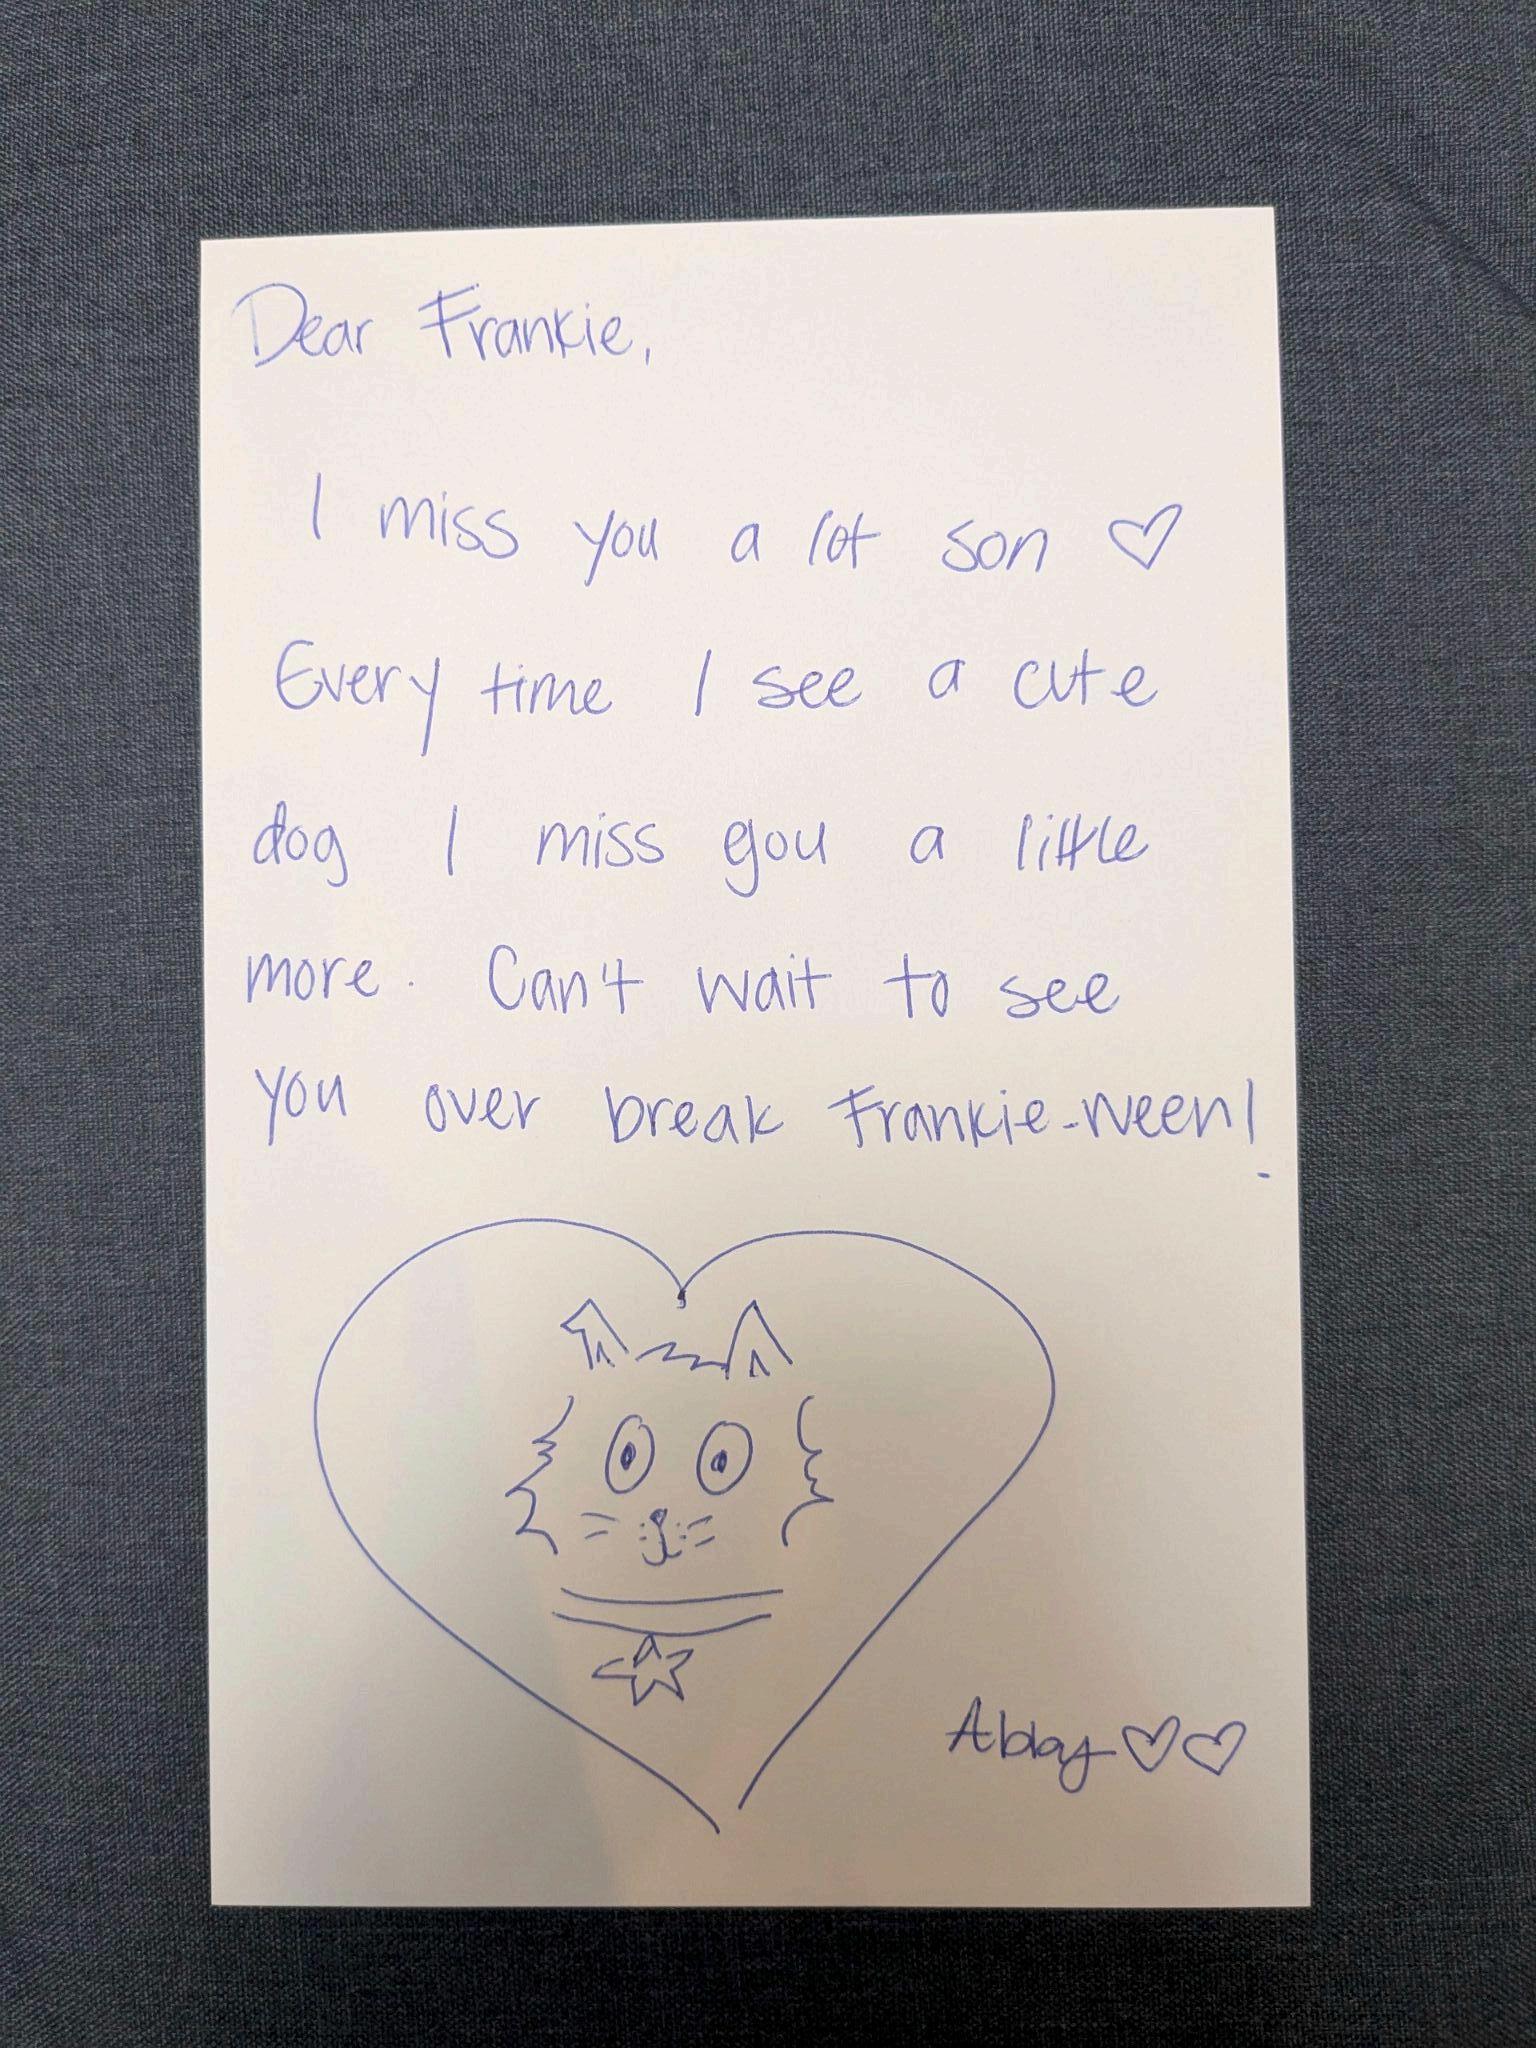 Dear Frankie,
I miss you a lot son ♡
Every time I see a cute
dog I miss you a little
more. Can't wait to see
you over break Frankie-ween!
Abby ♡♡